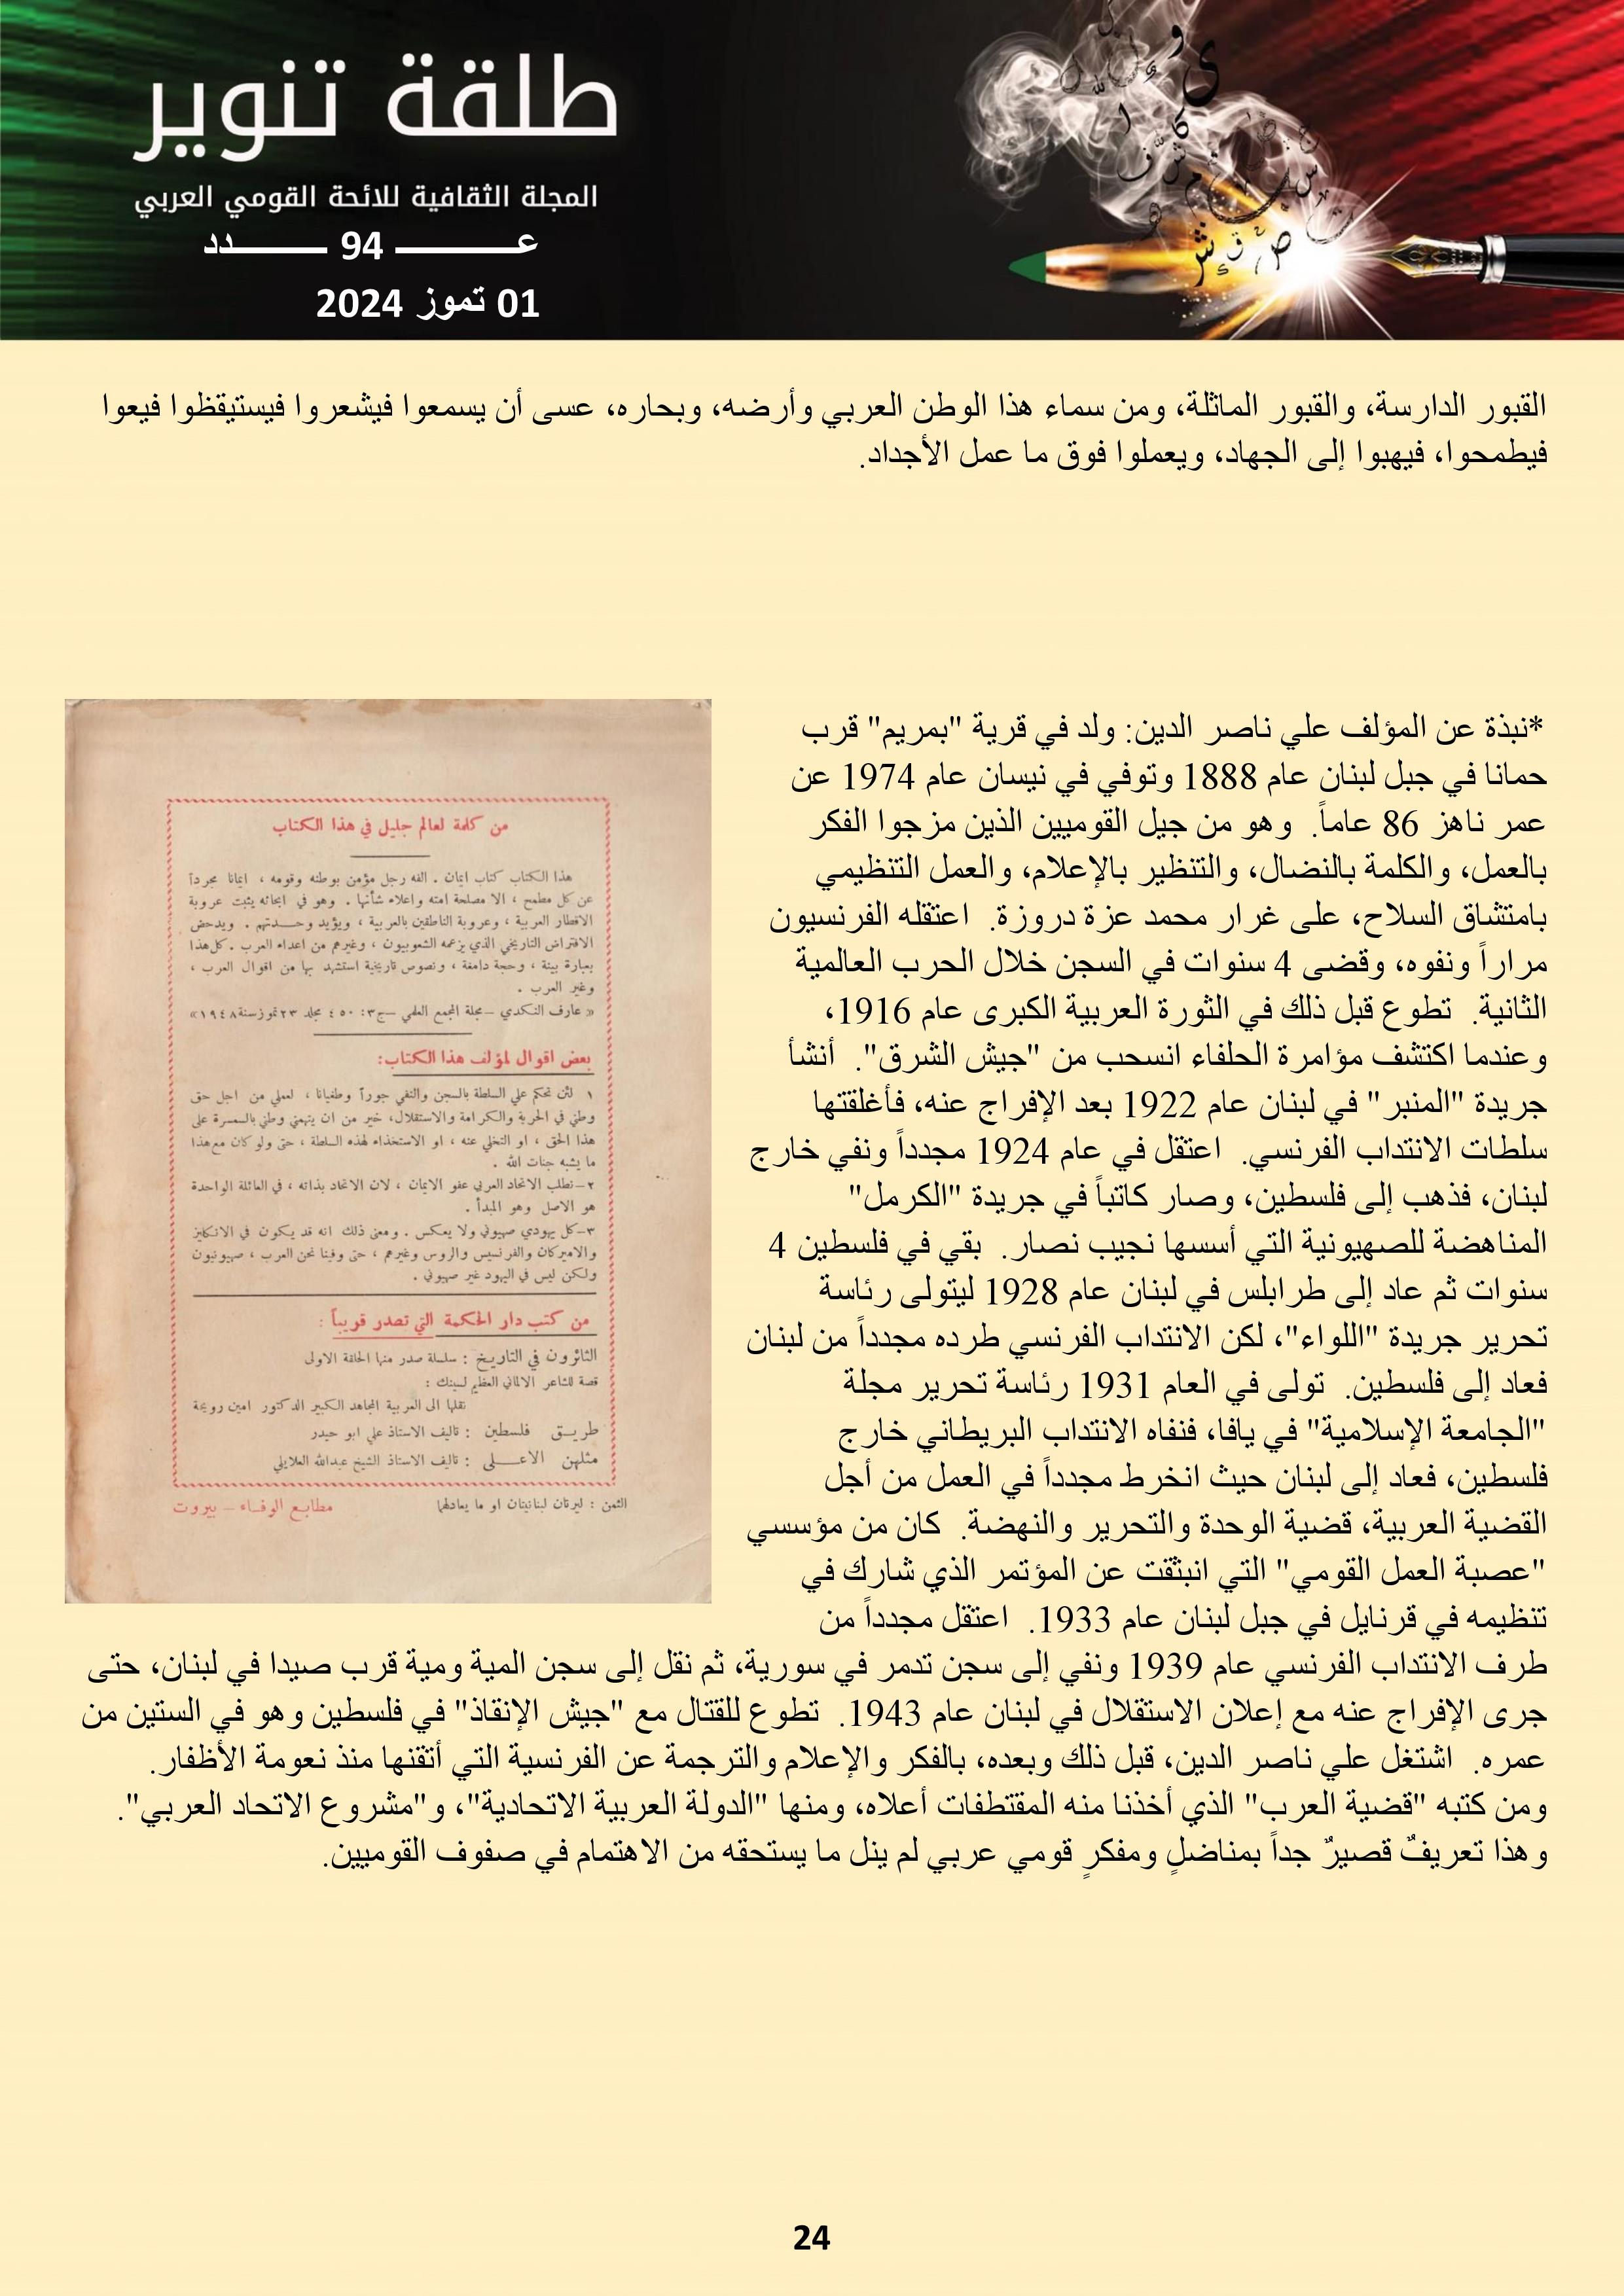 طلقة تنوير
المجلة الثقافية للائحة القومي العربي
عـــــــــ 94 ـــــــــدد
01 تموز 2024
القبور الدارسة، والقبور الماثلة، ومن سماء هذا الوطن العربي وأرضه، وبحاره، عسى أن يسمعوا فيشعروا فيستيقظوا فيعوا
فيطمحوا، فيهبوا إلى الجهاد، ويعملوا فوق ما عمل الأجداد.
*نبذة عن المؤلف علي ناصر الدين: ولد في قرية "بمريم" قرب
حمانا في جبل لبنان عام 1888 وتوفي في نيسان عام 1974 عن
عمر ناهز 86 عاماً. وهو من جيل القوميين الذين مزجوا الفكر
بالعمل، والكلمة بالنضال، والتنظير بالإعلام، والعمل التنظيمي
بامتشاق السلاح، على غرار محمد عزة دروزة. اعتقله الفرنسيون
مراراً ونفوه، وقضى 4 سنوات في السجن خلال الحرب العالمية
الثانية. تطوع قبل ذلك في الثورة العربية الكبرى عام 1916،
وعندما اكتشف مؤامرة الحلفاء انسحب من "جيش الشرق". أنشأ
جريدة "المنبر" في لبنان عام 1922 بعد الإفراج عنه، فأغلقتها
سلطات الانتداب الفرنسي. اعتقل في عام 1924 مجدداً ونفي خارج
لبنان، فذهب إلى فلسطين، وصار كاتباً في جريدة "الكرمل"
المناهضة للصهيونية التي أسسها نجيب نصار. بقي في فلسطين 4
سنوات ثم عاد إلى طرابلس في لبنان عام 1928 ليتولى رئاسة
تحرير جريدة "اللواء"، لكن الانتداب الفرنسي طرده مجدداً من لبنان
فعاد إلى فلسطين. تولى في العام 1931 رئاسة تحرير مجلة
"الجامعة الإسلامية" في يافا، فنفاه الانتداب البريطاني خارج
فلسطين، فعاد إلى لبنان حيث انخرط مجدداً في العمل من أجل
القضية العربية، قضية الوحدة والتحرير والنهضة. كان من مؤسسي
"عصبة العمل القومي" التي انبثقت عن المؤتمر الذي شارك في
تنظيمه في قرنايل في جبل لبنان عام 1933. اعتقل مجدداً من
طرف الانتداب الفرنسي عام 1939 ونفي إلى سجن تدمر في سورية، ثم نقل إلى سجن المية ومية قرب صيدا في لبنان، حتى
جرى الإفراج عنه مع إعلان الاستقلال في لبنان عام 1943. تطوع للقتال مع "جيش الإنقاذ" في فلسطين وهو في الستين من
عمره. اشتغل علي ناصر الدين، قبل ذلك وبعده، بالفكر والإعلام والترجمة عن الفرنسية التي أتقنها منذ نعومة الأظفار.
ومن كتبه "قضية العرب" الذي أخذنا منه المقتطفات أعلاه، ومنها "الدولة العربية الاتحادية"، و"مشروع الاتحاد العربي".
وهذا تعريفٌ قصيرٌ جداً بمناضلٍ ومفكرٍ قومي عربي لم ينل ما يستحقه من الاهتمام في صفوف القوميين.
من كلمة لعالم جليل في هذا الكتاب
هذا الكتاب كتاب ايمان . الفه رجل مؤمن بوطنه وقومه ، ايمانا مجرداً
عن كل مطمح ، الا مصلحة امته واعلاء شأنها . وهو في ابحاثه يثبت عروبة
الاقطار العربية ، وعروبة الناطقين بالعربية ، ويؤيد وحـدتهم . ويدحض
الافتراض التاريخي الذي يزعمه الشعوبيون ، وغيرهم من اعداء العرب . كل هذا
بعبارة بينة ، وحجة دامغة ، ونصوص تاريخية استشهد بها من اقوال العرب ،
وغير العرب .
« عارف النكدي – مجلة المجمع العلمي – ج٣ : ٤٥٠ مجلد ٢٣ تموز سنة ١٩٤٨»
بعض اقوال لمؤلف هذا الكتاب:
١ لئن تحكم علي السلطة بالسجن والنفي جوراً وطغيانا ، لعملي من اجل حق
وطني في الحرية والكرامة والاستقلال، خير من ان يتهمني وطني بالسمسرة على
هذا الحق ، او التخلي عنه ، او الاستخذاء لهذه السلطة ، حتى ولو كان مع هذا
ما يشبه جنات الله .
٢– نطلب الاتحاد العربي عفو الايمان ، لان الاتحاد بذاته ، في العائلة الواحدة
هو الاصل وهو المبدأ .
٣– كل يهودي صهيوني ولا يعكس . ومعنى ذلك انه قد يكون في الانكليز
والاميركان والفرنسيس والروس وغيرهم ، حتى وفينا نحن العرب ، صهيونيون
ولكن ليس في اليهود غير صهيوني .
من كتب دار الحكمة التي تصدر قريباً :
الثائرون في التاريخ : سلسلة صدر منها الحلقة الاولى
قصة للشاعر الالماني العظيم لسينك :
نقلها الى العربية المجاهد الكبير الدكتور امين رويحة
طريـق فلسطين : تاليف الاستاذ علي ابو حيدر
مثلهن الاعـلى : تاليف الاستاذ الشيخ عبدالله العلايلي
الثمن : ليرتان لبنانيتان او ما يعادلها
مطابع الوفـاء – بيروت
24